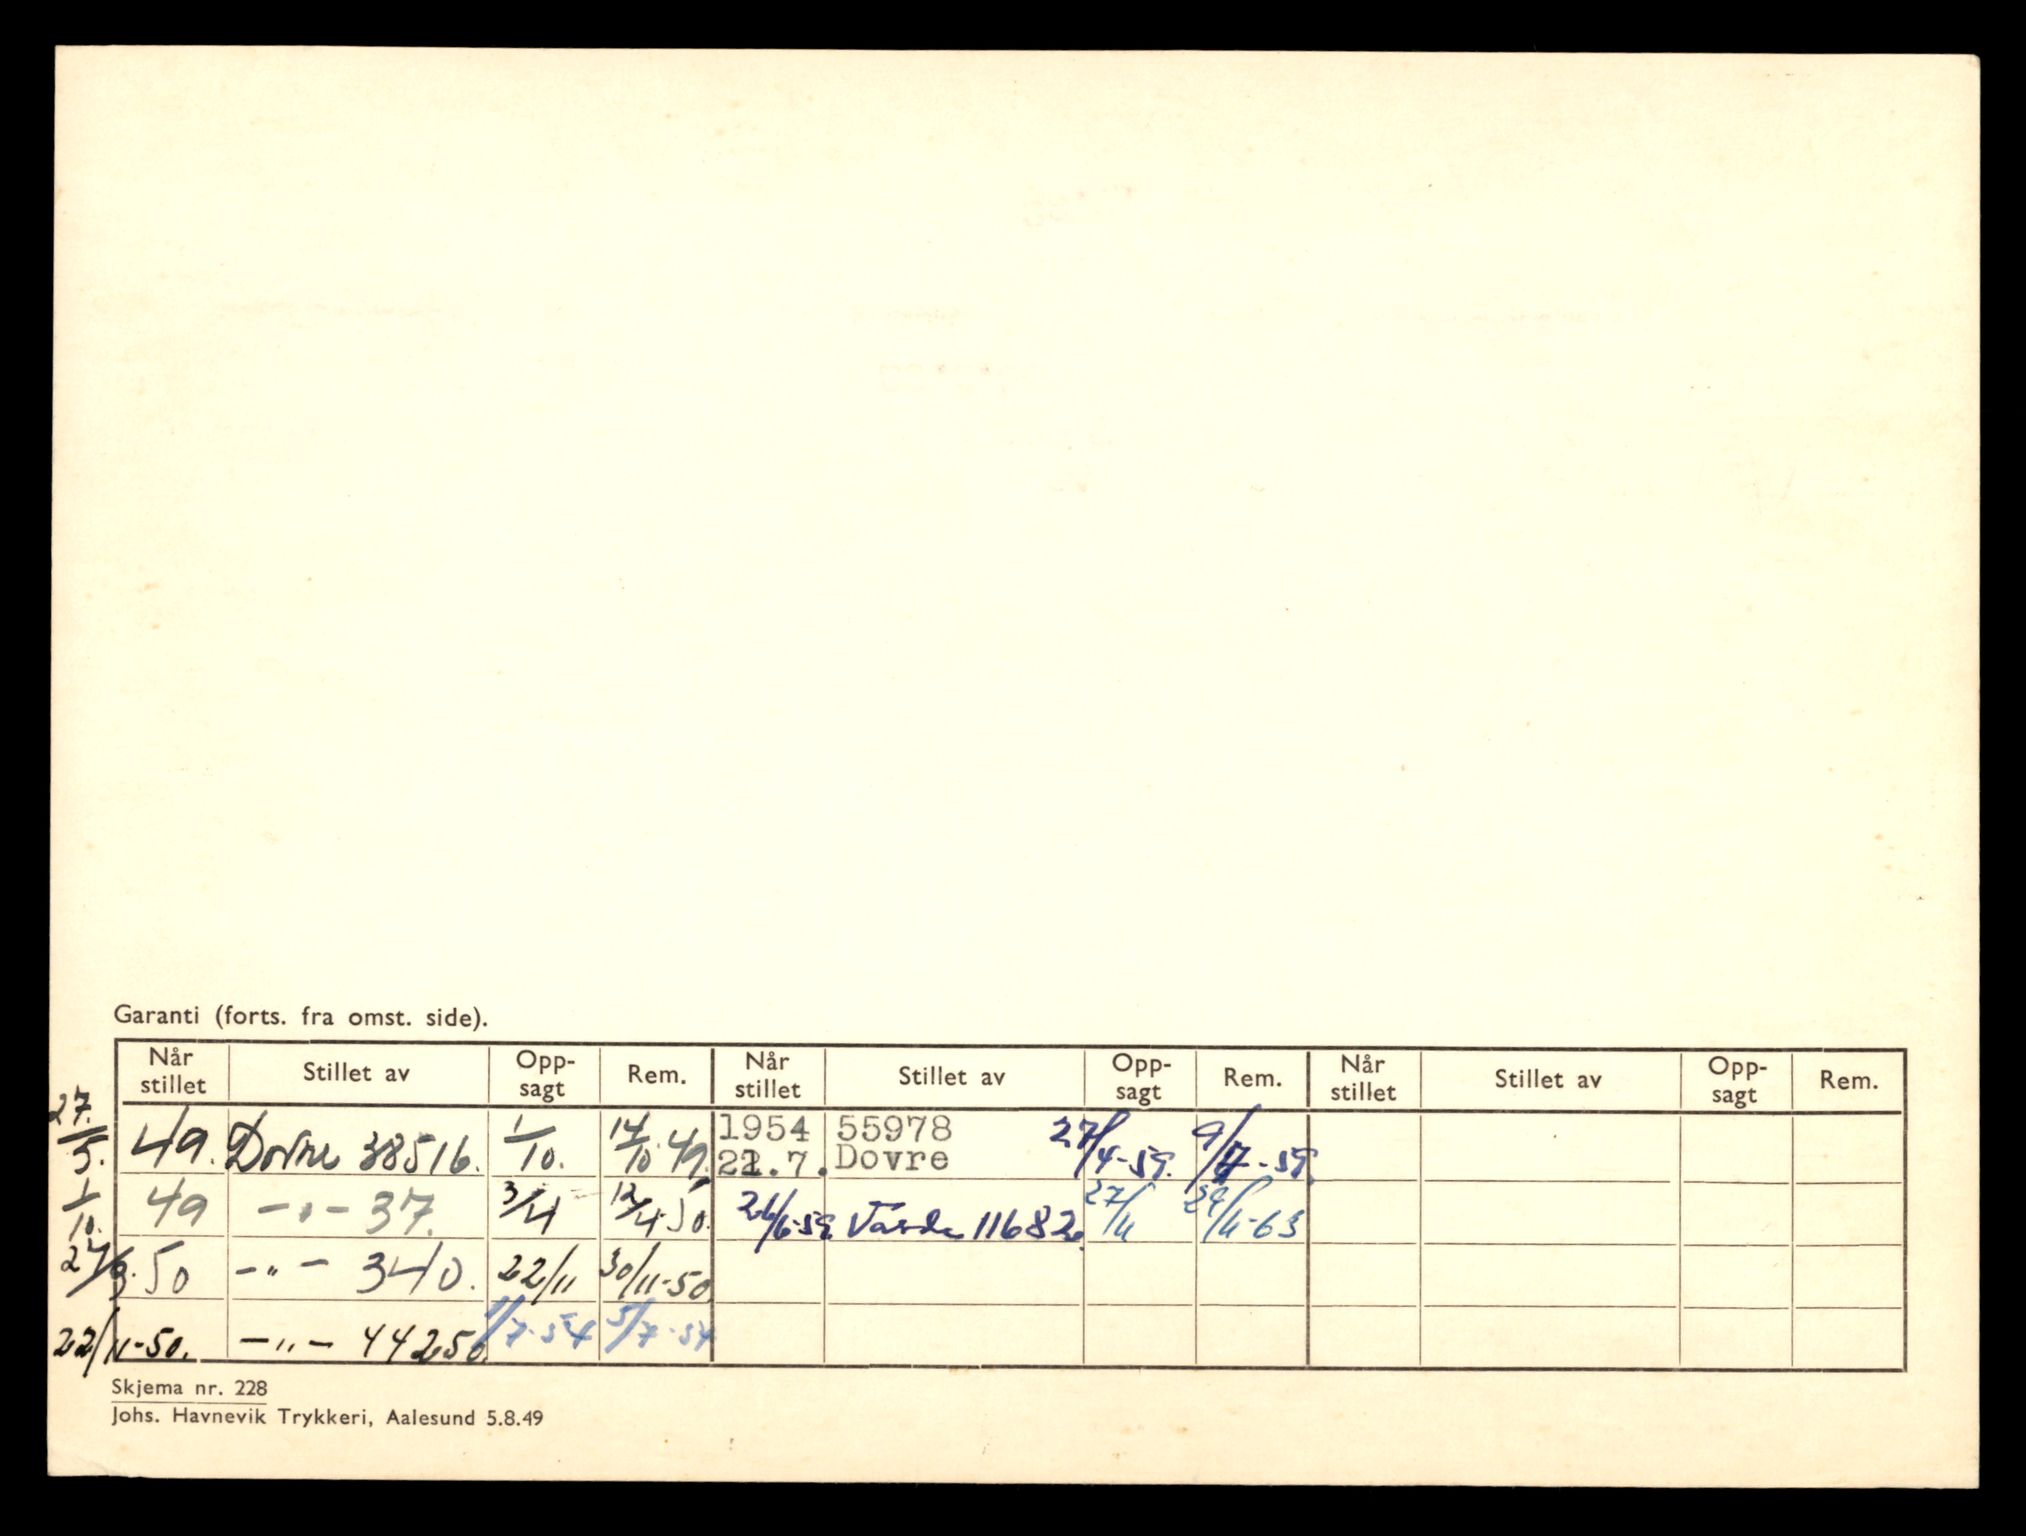 Garanti (forts. fra omst. side).
Når stillet Stillet av Opp-sagt Rem. Når stillet Stillet av Opp-sagt Rem. Når stillet Stillet av Opp-sagt Rem.
27/5. 49. Dovre 38516. 1/10. 14/10.49. 1954 21.7. 55978 Dovre 27/4-59. 9/7-59.
1/10. 49 -"- 37. 3/4 12/4.50. 26/6-59. 11682 27/11 29/11-63
50 -"- 340. 22/11 30/11-50
22/11-50. -"- 44250. 1/7-54 5/7-54
Skjema nr. 228
Johs. Havnevik Trykkeri, Aalesund 5.8.49